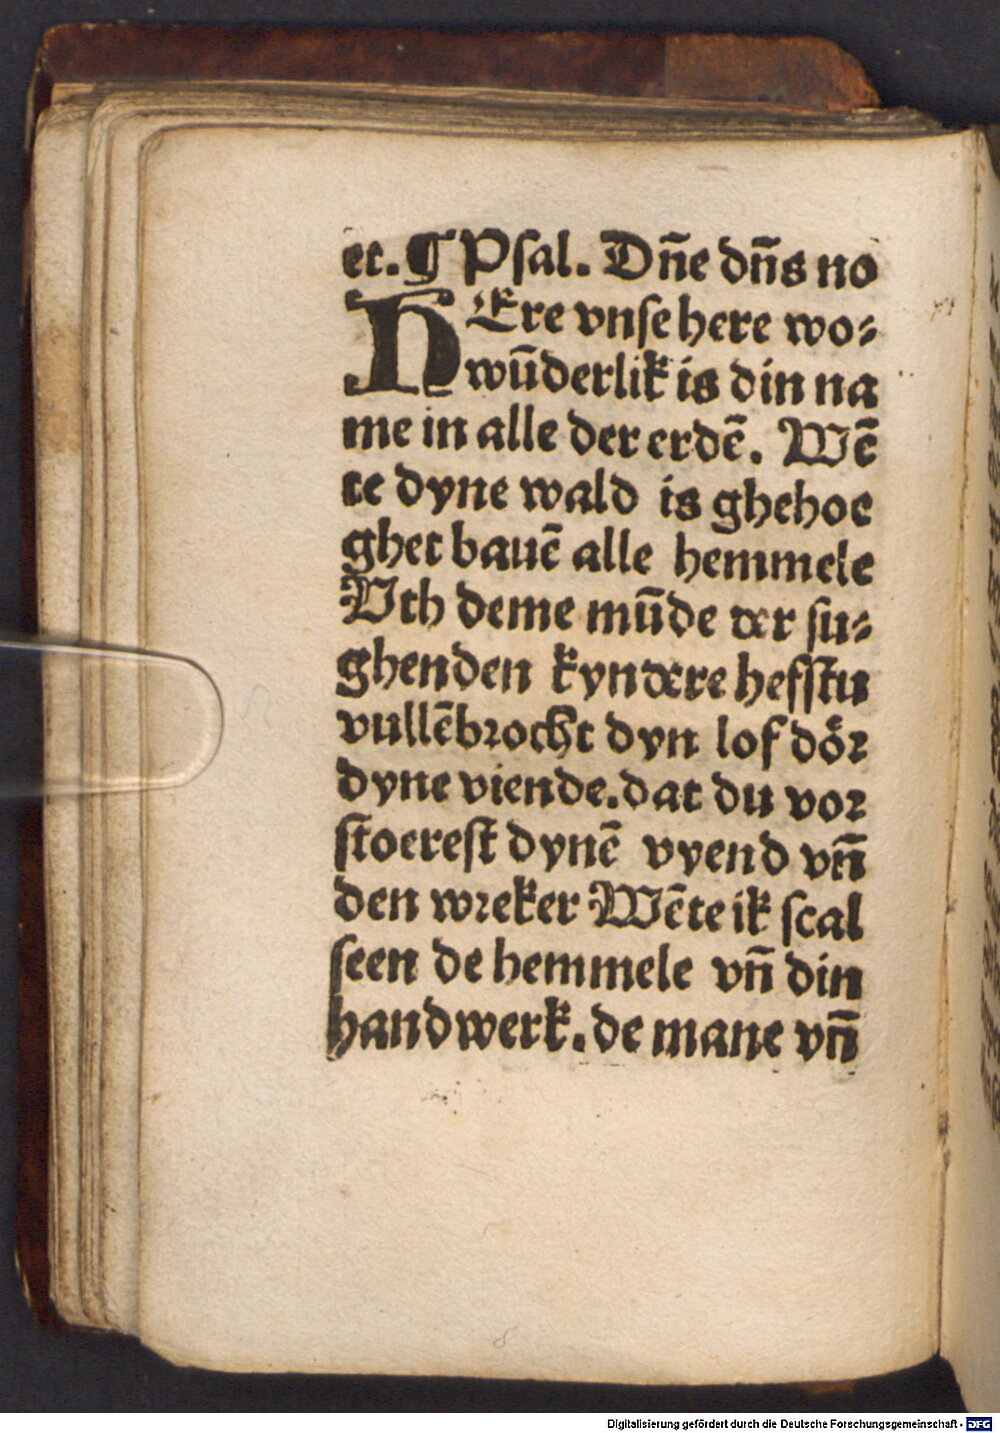 et. ¶ Psal. Dn̄e dn̄s no
HEre vnse here wo⸗
wūderlik is din na
me in alle der erdē. Wē
te dyne wald is ghehoe
ghet bauē alle hemmele
Vth deme mūde der su⸗
ghenden kyndere hefstu
vullēbrocht dyn lof dꝛ doͤr
dyne viende. dat du vor
stoerest dynē vyend vn̄
den wreker Wēte ik scal
seen de hemmele vn̄ din
handwerk. de mane vn̄
Digitalisierung gefördert durch die Deutsche Forschungsgemeinschaft - DFG